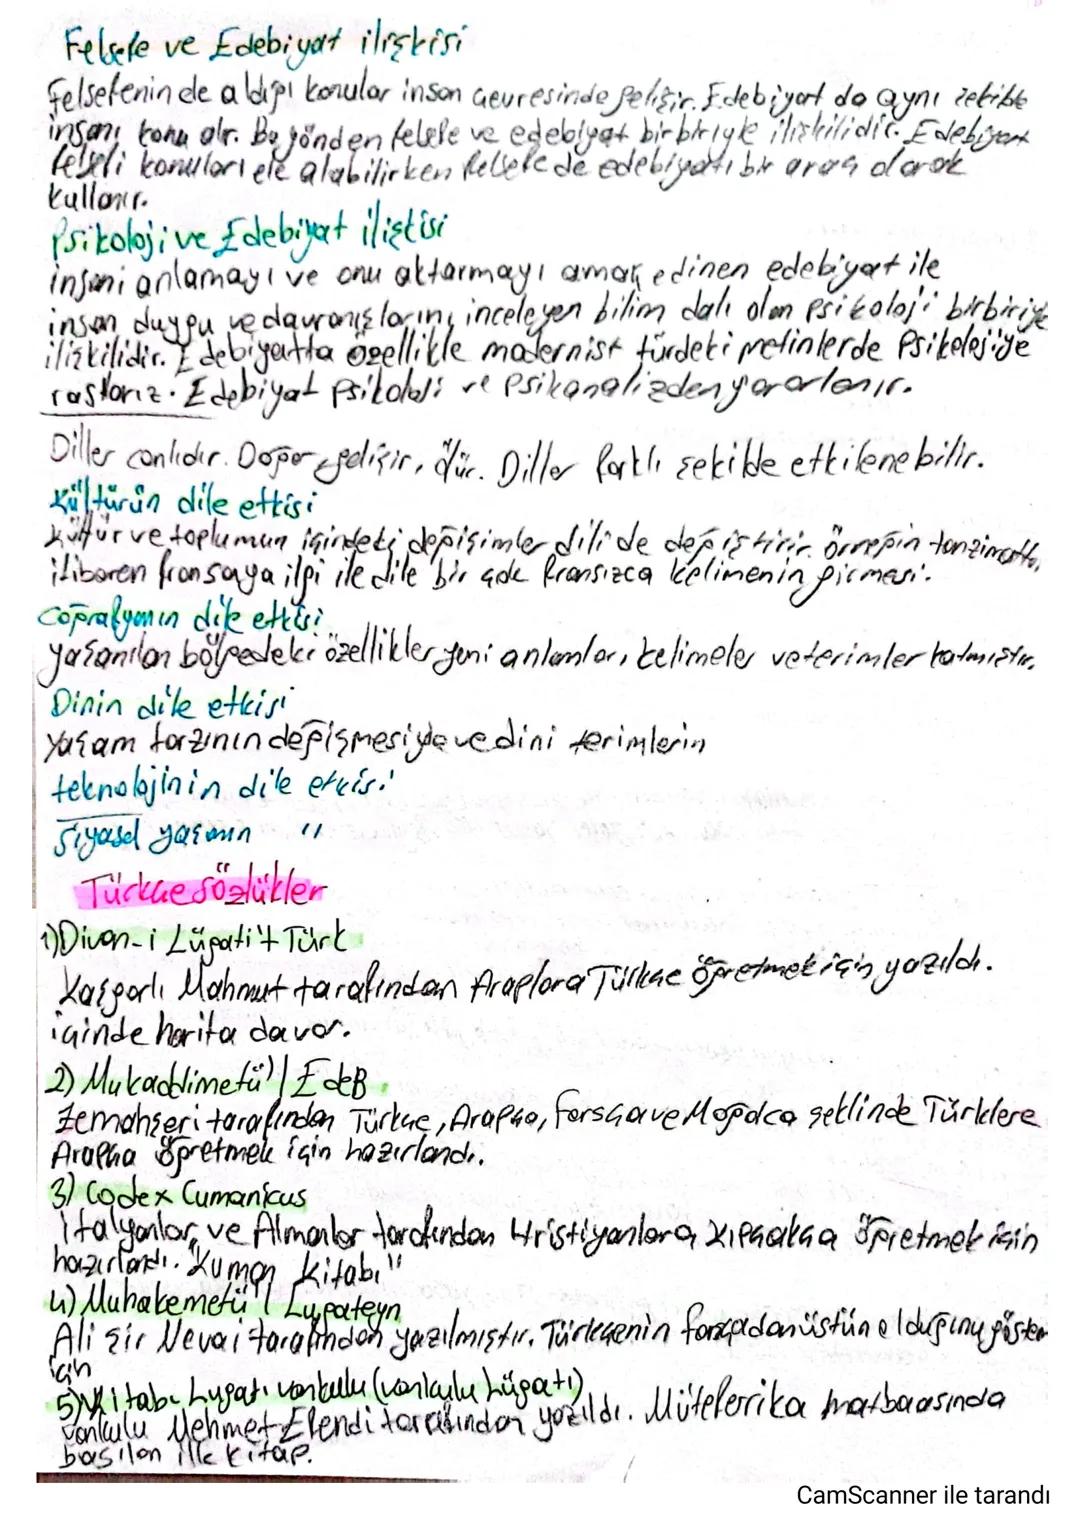 Felsefe ve Edebiyat ilişkisi
Felsefenin ele aldığı konular insan çevresinde gelişir. Edebiyat da aynı şekilde
insanı konu alır. Bu yönden felsefe ve edebiyat birbiriyle ilişkilidir. Edebiyat
felsefi konuları ele alabilirken felsefe de edebiyatı bir araç olarak
kullanır.
Psikoloji ve Edebiyat ilişkisi
insanı anlamayı ve onu aktarmayı amaç edinen edebiyat ile
insan duygu ve davranışlarını inceleyen bilim dalı olan psikoloji birbiriyle
ilişkilidir. Edebiyatta özellikle modernist türdeki metinlerde Psikolojiye
rastlarız. Edebiyat psikoloji ve psikanalizden yararlanır.
Diller canlıdır. Doğar, gelişir, ölür. Diller farklı şekilde etkilenebilir.
Kültürün dile etkisi
Kültür ve toplumun içindeki değişimler dili de değiştirir. örneğin tanzimattan
itibaren fransaya ilgi ile dile bir çok fransızca kelimenin girmesi.
Coğrafyanın dile etkisi
yaşanılan bölgedeki özellikler yeni anlamlar, kelimeler ve terimler katmıştır.
Dinin dile etkisi
Yaşam tarzının değişmesiyle ve dini terimlerin
teknolojinin dile etkisi
Siyasal yaşamın "
Türkçe Sözlükler
1) Divan-i Lügati't Türk
Kaşgarlı Mahmut tarafından Araplara Türkçe öğretmek için yazıldı.
içinde harita da var.
2) Mukaddimetü'l Edeb
Zemahşeri tarafından Türkçe, Arapça, farsça ve Moğolca şeklinde Türklere
Arapça öğretmek için hazırlandı.
3) Codex Cumanicus
İtalyanlar ve Almanlar tarafından Hristiyanlara Kıpçakça öğretmek için
hazırlandı. "Kuman kitabı"
4) Muhakemetü'l Lugateyn
Ali Şir Nevai tarafından yazılmıştır. Türkçenin farsçadan üstün olduğunu göster
için
5) Kitab-ı Lugatı vankulu (vankulu Lügatı)
Vankulu Mehmet Efendi tarafından yazıldı. Müteferrika matbaasında
basılan ilk kitap.
CamScanner ile tarandı